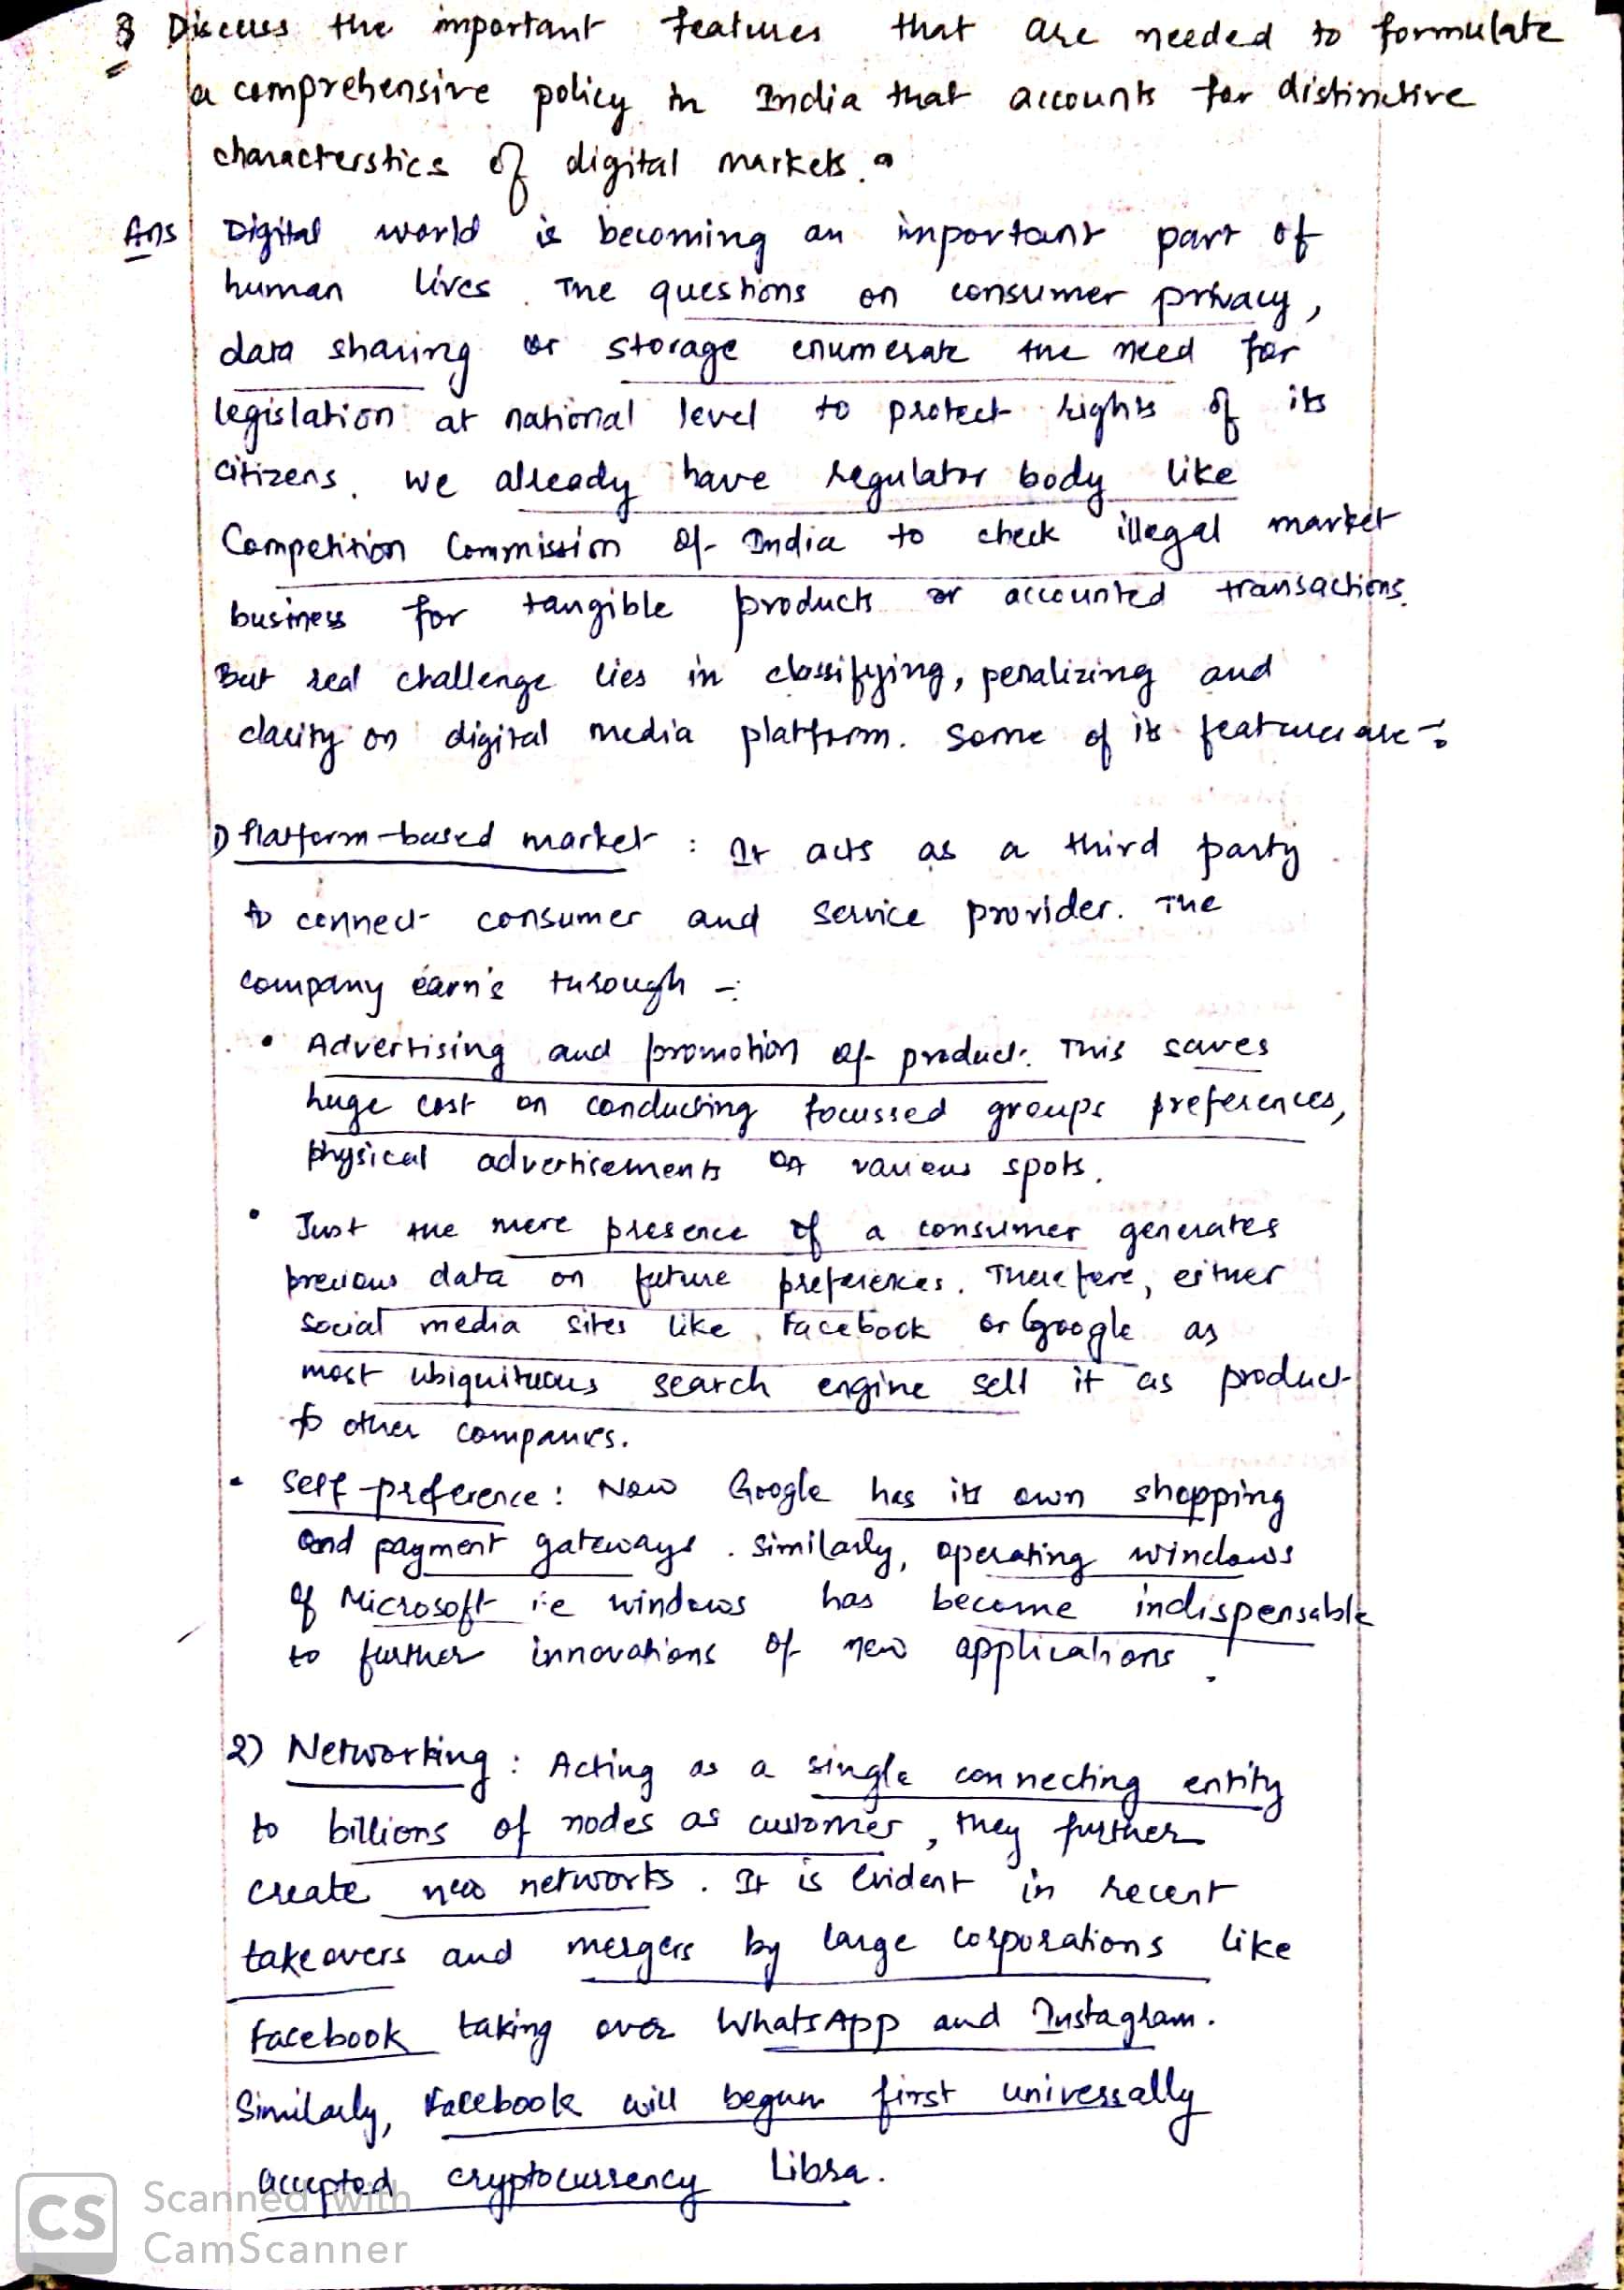 Q Discuss the important features that are needed to formulate
a comprehensive policy in India that accounts for distinctive
characterstics of digital markets.
Ans Digital world is becoming an important part of
human lives. The questions on consumer privacy,
data sharing or storage enumerate the need for
legislation at national level to protect rights of its
citizens. We already have regulator body like
Competition Commission of India to check illegal market
business for tangible products or accounted transactions.
But real challenge lies in classifying, penalizing and
clarity on digital media platform. Some of its features are :-
1) Platform-based market : It acts as a third party
to connect consumer and service provider. The
company earn's through -:
• Advertising and promotion of product. This saves
huge cost on conducting focussed groups preferences,
physical advertisements on various spots.
• Just the mere presence of a consumer generates
previous data on future preferences. Therefore, either
social media sites like, Facebook or Google as
most ubiquituous search engine sell it as product
to other companies.
• Self-preference : Now Google has its own shopping
and payment gateways. Similarly, operating windows
of Microsoft i.e windows has become indispensable
to further innovations of new applications.
2) Networking : Acting as a single connecting entity
to billions of nodes as customer, they further
create new networks. It is evident in recent
takeovers and mergers by large corporations like
Facebook taking over WhatsApp and Instagram.
Similarly, Facebook will begun first universally
accepted cryptocurrency Libra.
CS Scanned with
CamScanner